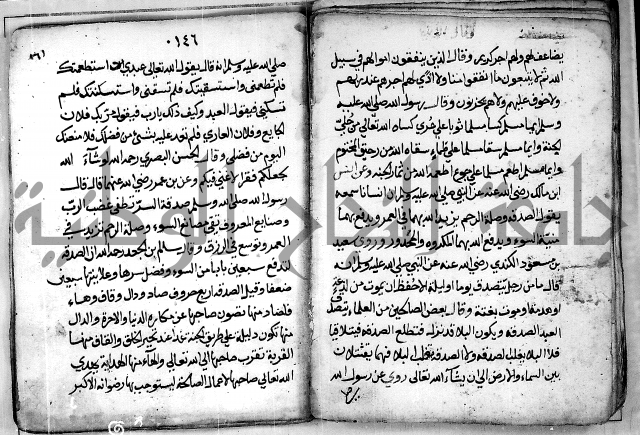 يضاعف لهم ولهم اجر كريم وقال الذين ينفقون اموالهم في سبيل
الله ثم لا يتبعون ما انفقوا منا ولا اذى لهم اجرهم عند ربهم
ولا خوف عليهم ولا هم يحزنون وقال رسول الله صلى الله عليه
وسلم ايما مسلم كسا مسلما ثوبا على عري كساه الله تعالى من
الجنة وايما مسلم سقا مسلما على ظماء سقاه الله من رحيق المختوم
وايما مسلم اطعم مسلما على جوع اطعمه الله من ثمار الجنة وعن انس
ابن مالك رضي الله عنه عن النبي صلى الله عليه وسلم ان انسانا سمعه
يقول الصدقه وصلة الرحم يزيد الله بهما في العمر ويدفع بهما
ميتة السوء ويدفع الله بهما المكروه والمحذور وروي سعيد
بن مسعود الكندي رضي الله عنه عن النبي صلى الله عليه وسلم انه
قال ما من رجل يتصدق يوما او ليلة الا حفظ ان يموت من
او هدم او موت بغتة وقال بعض الصالحين من العلماء يتصدق
العبد الصدقه ويكون البلا قد نزل فتطلع الصدقه فيتلاقيا
فلا البلا يغلب الصدقه ولا الصدقه تغلب البلا فهما يقتتلان
بين السماء والارض الى ان يشاء الله تعالى روي عن رسول الله
٠١٤٦
صلى الله عليه وسلم انه قال يقول الله تعالى عبدي استطعمتك
فلم تطعمني واستسقيتك فلم تسقني واستكسيتك فلم
تكسني فيقول العبد وكيف ذلك يارب فيقول مر بك فلان
الجايع وفلان العاري فلم تعد عليه بشئ من فضلك فلا منعنك
اليوم من فضلي وقال الحسن البصري رحمه الله لو شاء الله
لجعلكم فقراء لا غني فيكم وعن بن عمر رضي الله عنهما قال قال
رسول الله صلى الله وسلم صدقة السر تطفي غضب الرب
وصنايع المعروف تقي مصارع السوء وصلة الرحم تزيد في
العمر وتوسع في الرزق وقال سلم بن الجعد رحمه الله ان الصدقه
لتدفع سبعين بابا من السوء وفضل سرها وعلانيتها سبعين
ضعفا وقيل الصدقه اربع حروف صاد ودال وقاف وهاء
فالصاد منها تصون صاحبها عن مكاره الدنيا والاخرة والدال
منها تكون دليلة على طريق الجنة غدا عند تحير الخلق والقاف منها
القربة تقرب صاحبها الى الله تعالى والهاء منها الهداية يهدي
الله تعالى صاحبها الاعمال الصالحة ليستوجب بها رضوانه الاكبر
جامعة النجاح الوطنية